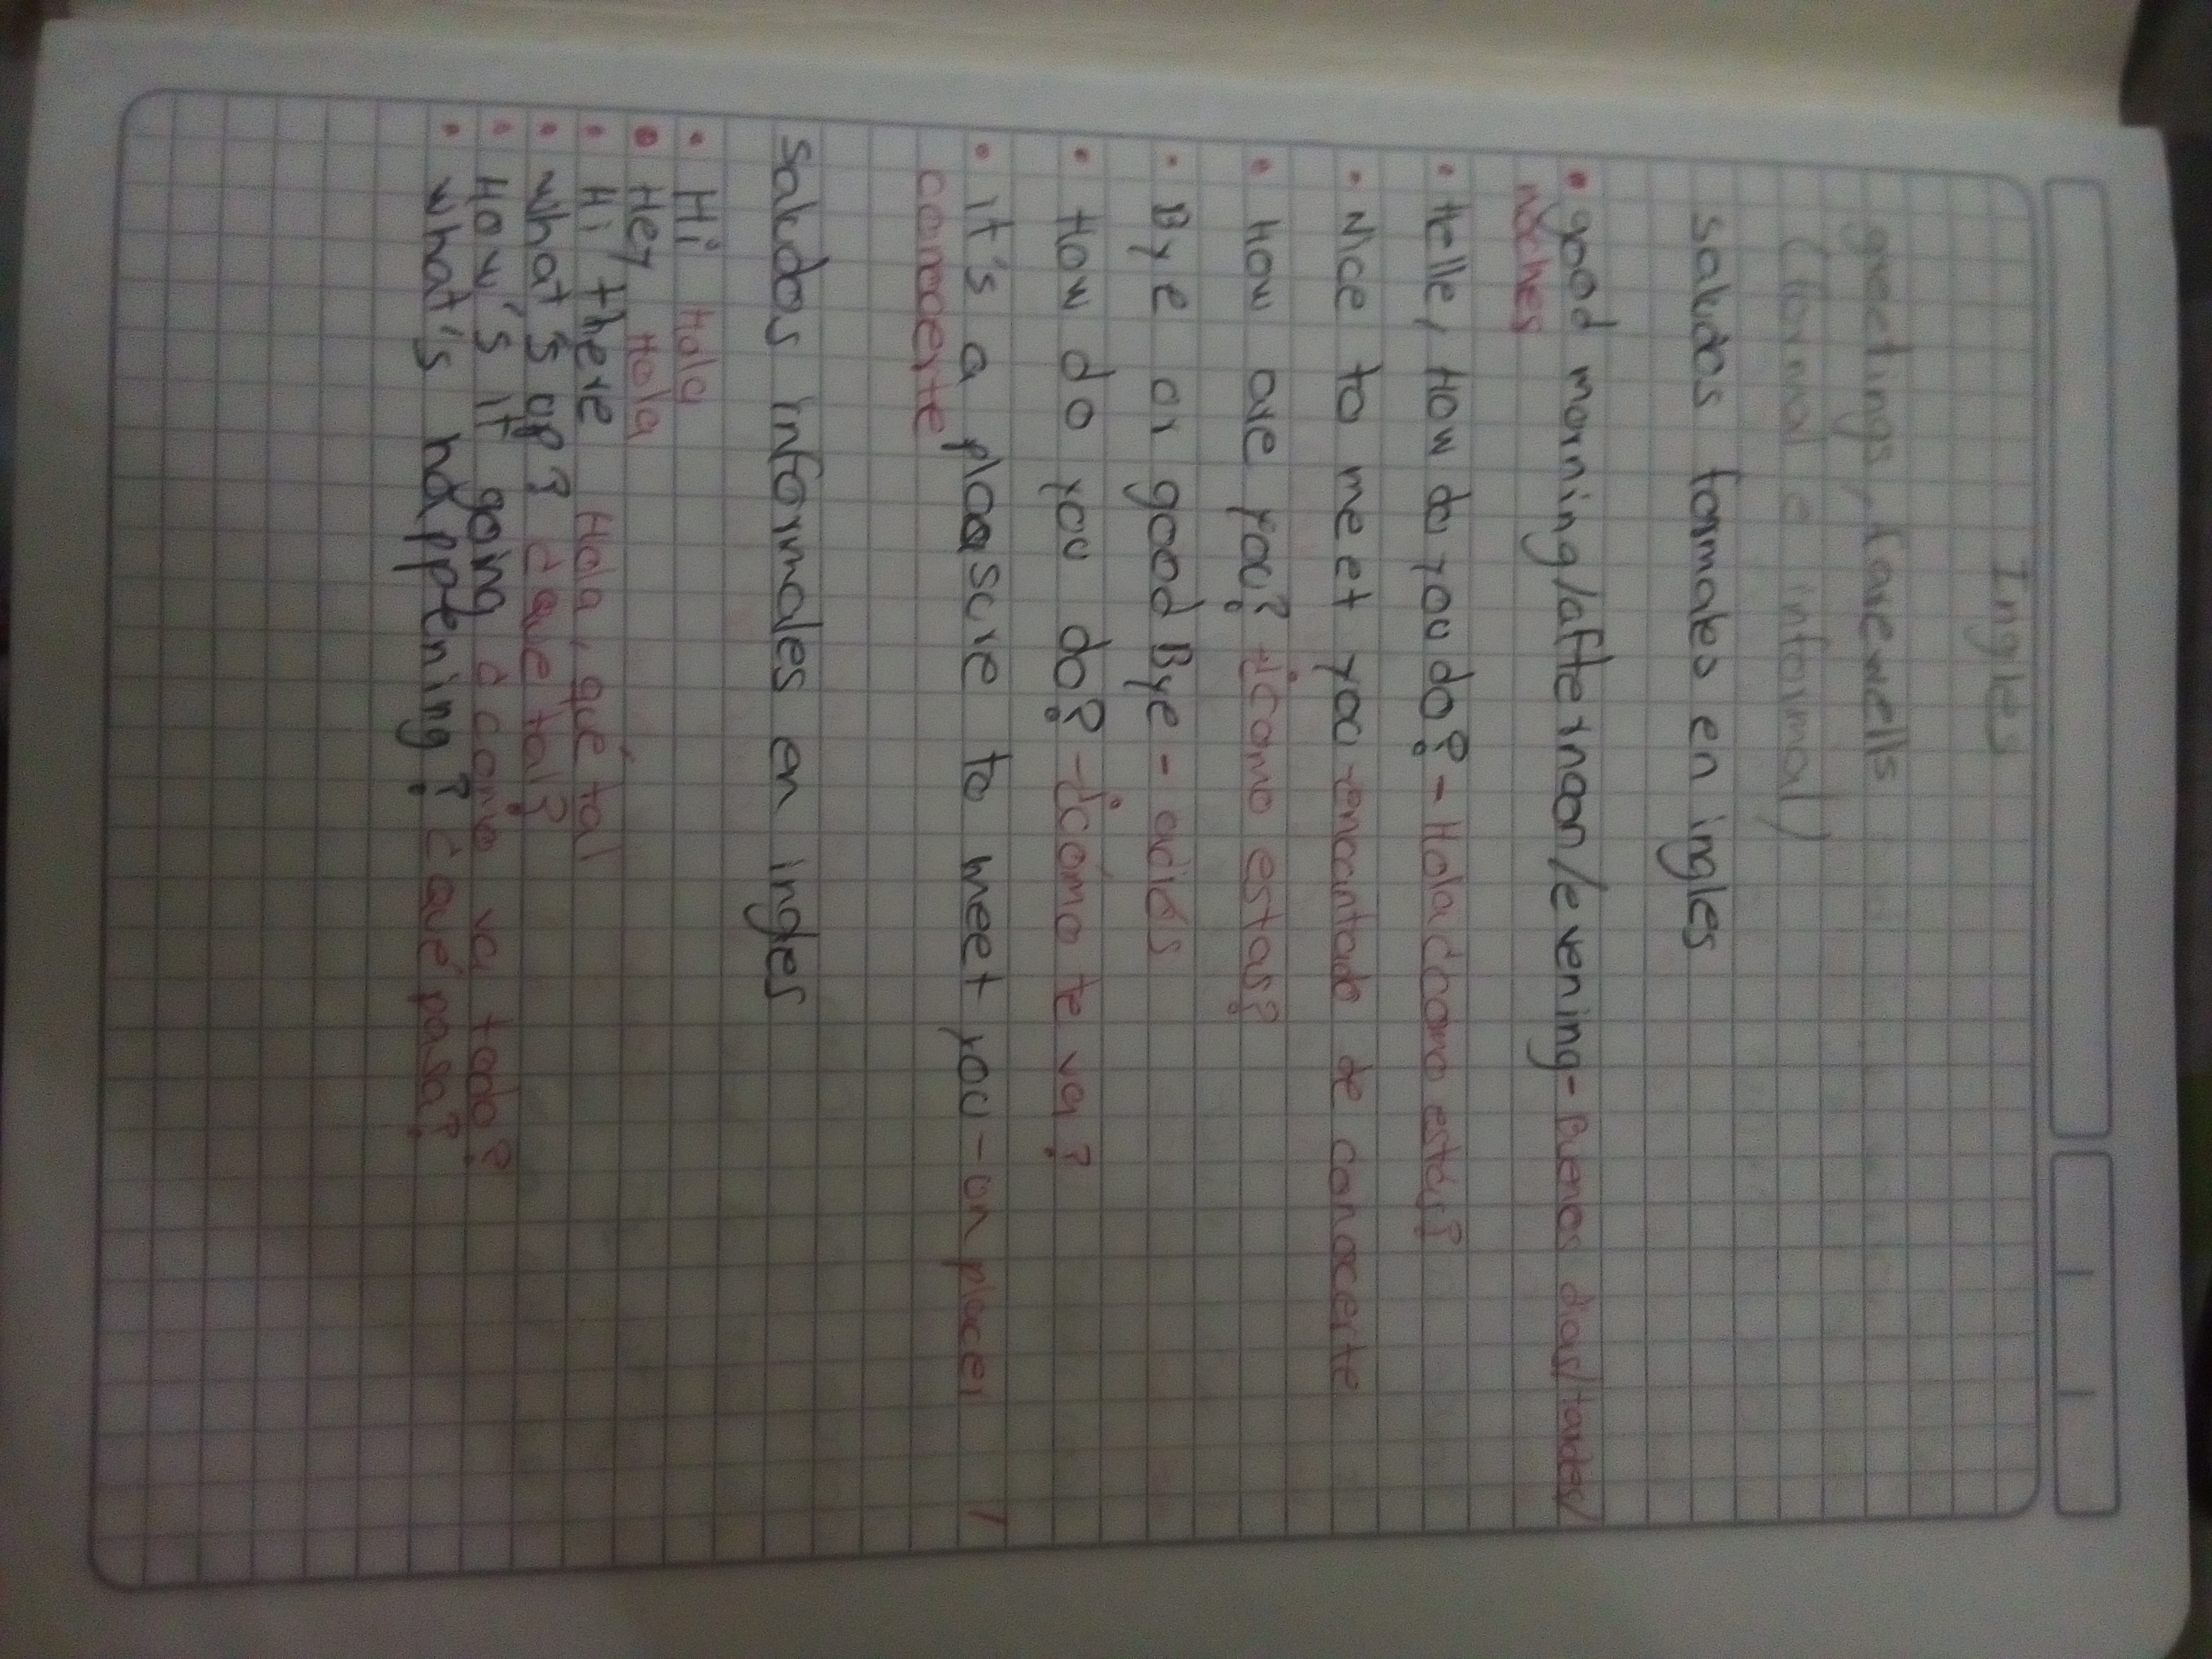 Ingles
greetings, farewells
(formal e informal)
saludos formales en ingles
• good morning/afternoon/evening-Buenos dias/tardes/
noches
• Helle, How do you do? - Hola ¿como estás?
• Nice to meet you -encantado de conocerte
• How are you? -¿Como estas?
• Bye or good Bye - adiós
• How do you do? -¿cómo te va?
• it's a pleasure to meet you - un placer /
conocerte
saludos informales en ingles
• Hi Hola
• Hey Hola
• Hi there Hola, qué tal
• what's up? ¿que tal?
• How's it going ¿como va todo?
• what's happening? ¿qué pasa?